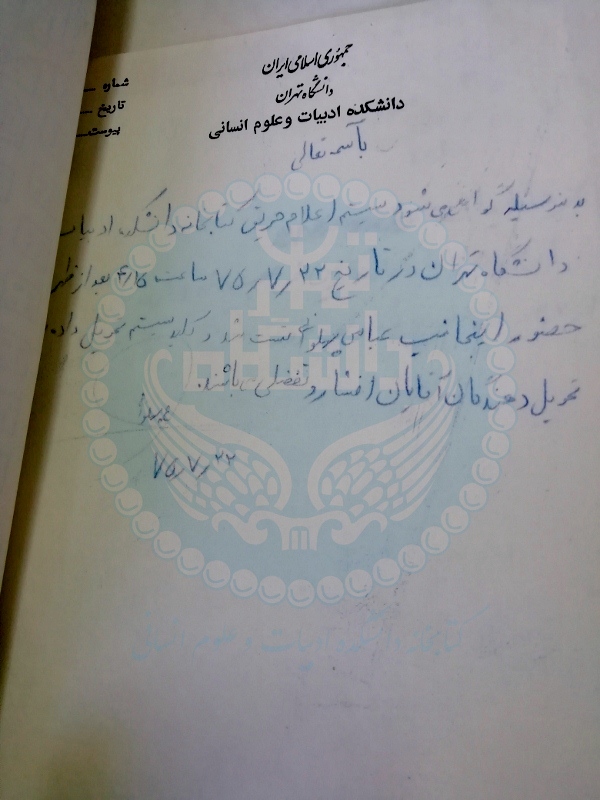 جمهوری اسلامی ایران
دانشگاه تهران
دانشکده ادبیات و علوم انسانی
شماره
تاریخ
پیوست
باسمه تعالی
بدینوسیله گواهی می شود سیستم اعلام حریق کتابخانه دانشکده ادبیات
دانشگاه تهران در تاریخ ۷۵/۷/۲۲ ساعت بعد از ظهر
حضور اینجانب عباس تست شد و کلید سیستم تحویل داده
تحویل دهندگان آقایان افشار و تفضلی می باشند.
۷۵/۷/۲۲
کتابخانه دانشکده ادبیات و علوم انسانی